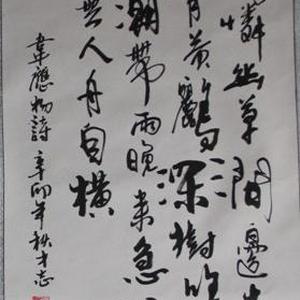 憐幽草澗邊生
有黃鸝深樹鳴
潮帶雨晚來急
無人舟自橫
韋應物詩辛卯年秋才志